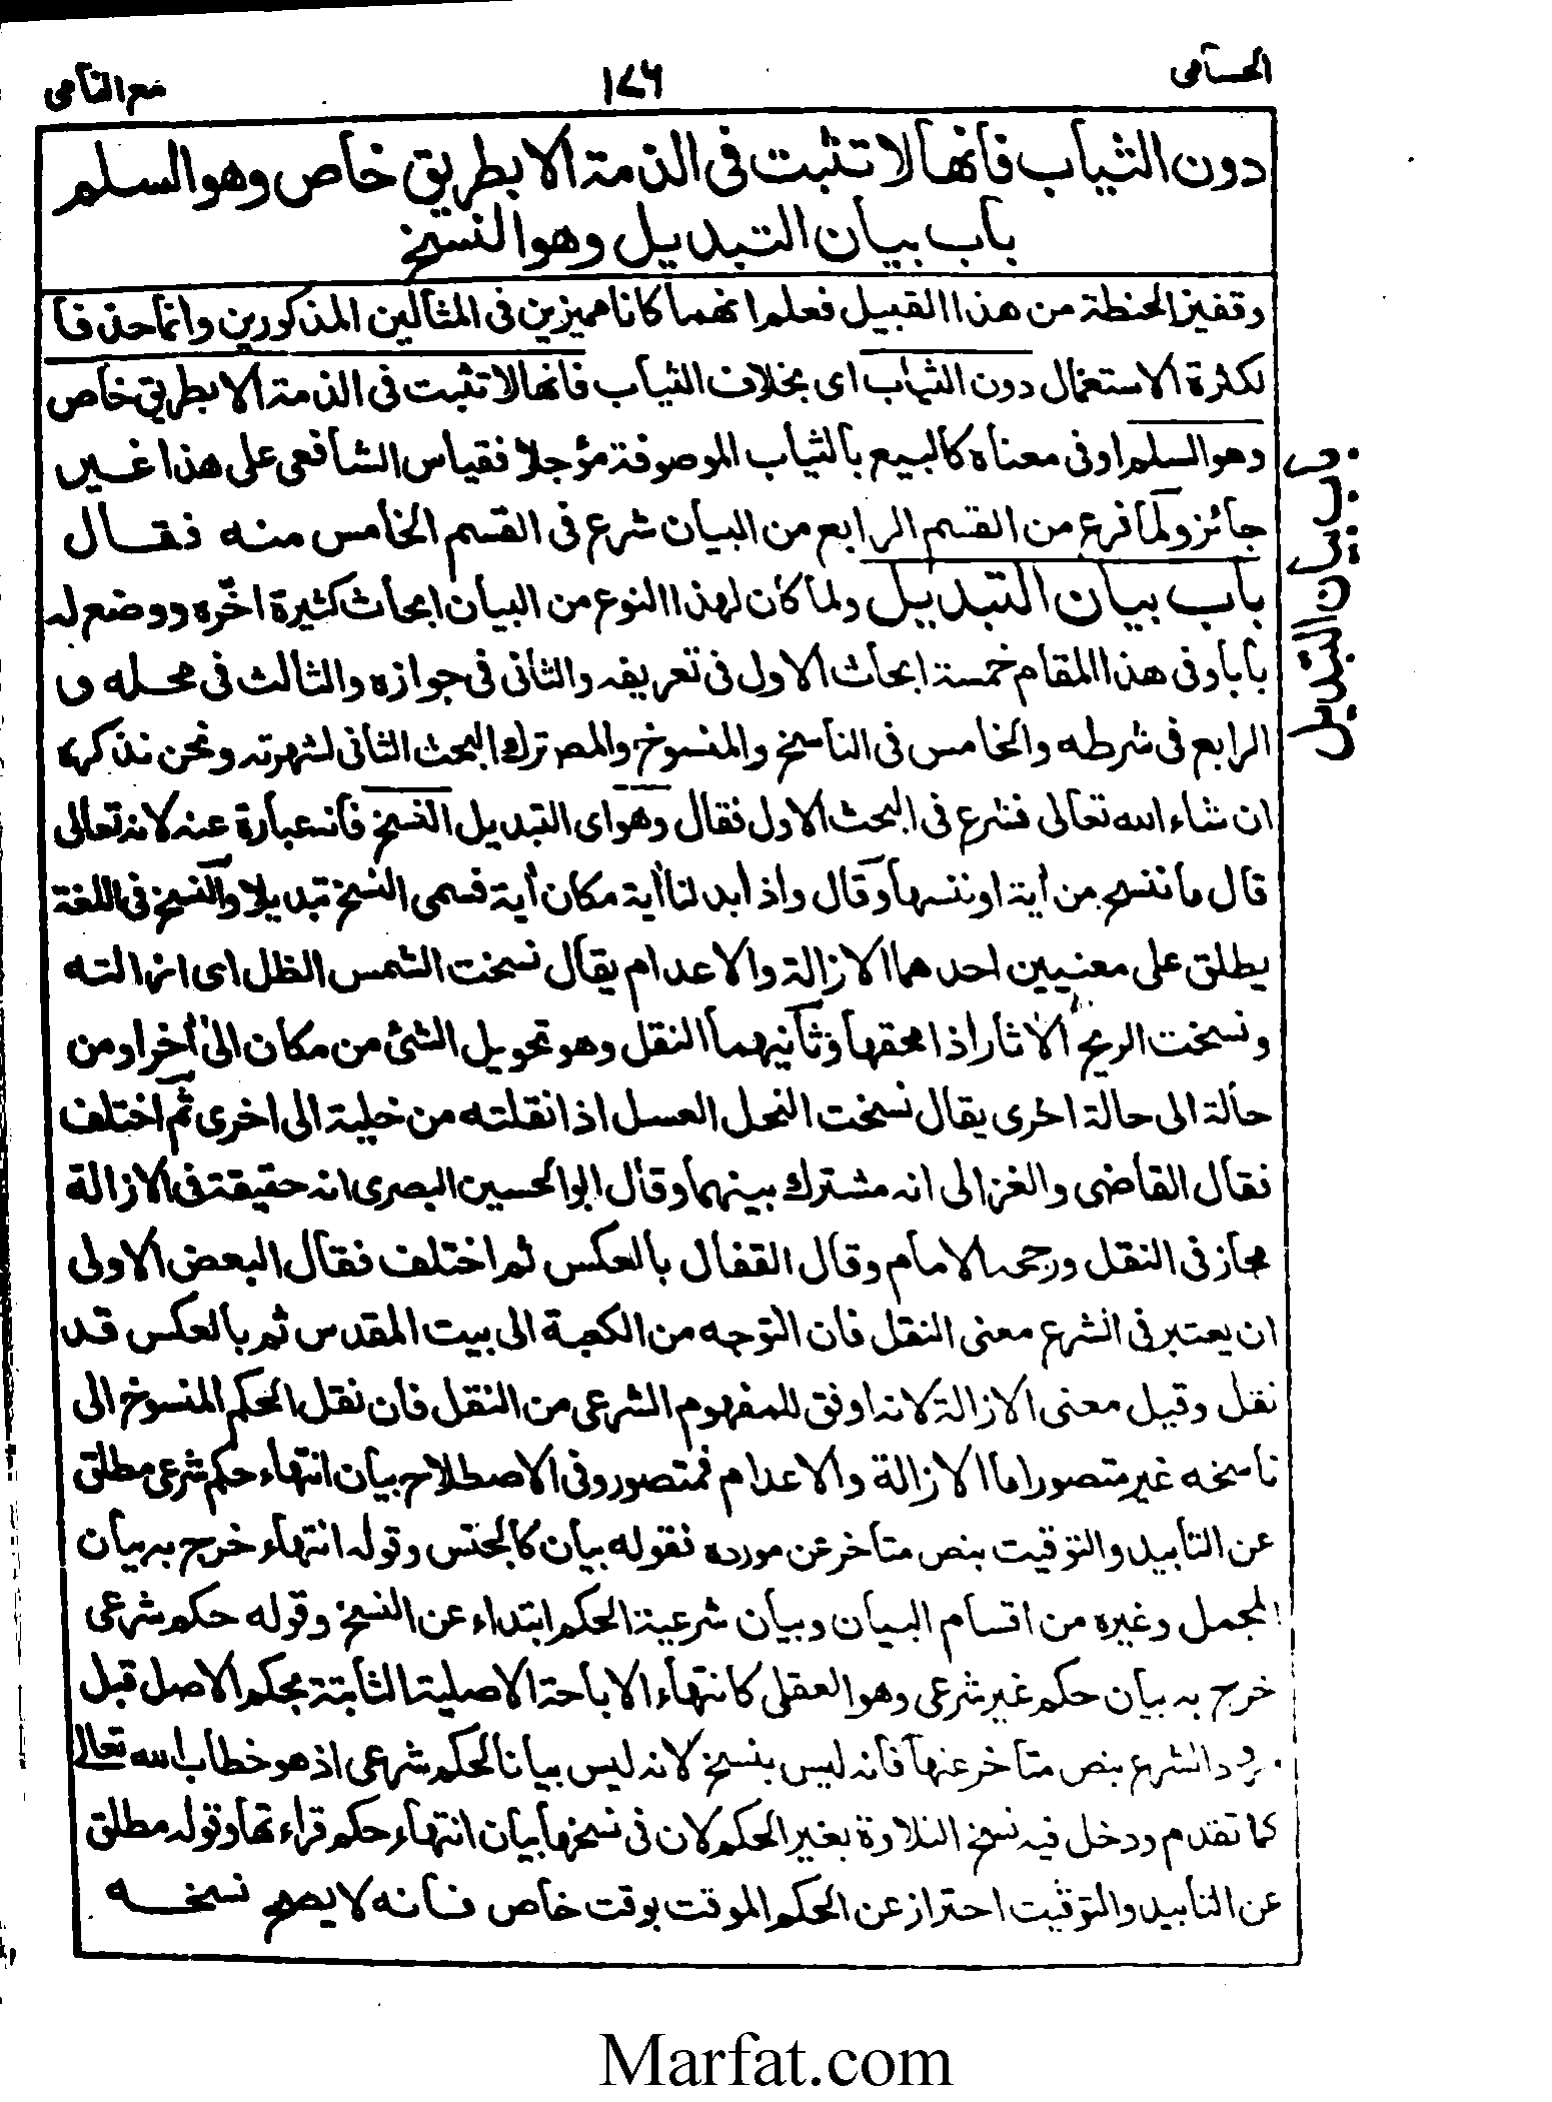 الحسامى
١٧٦
مع النامى
دون الثياب فانها لا تثبت فى الذمة الا بطريق خاص وهو السلم
باب بيان التبديل وهو النسخ
وقفيز الحنطة من هذا القبيل فعلم انهما كانا مميزين فى المثالين المذكورين وانما حذفا
لكثرة الاستعمال دون الثياب اى بخلاف الثياب فانها لا تثبت فى الذمة الا بطريق خاص
وهو السلم او فى معناه كالبيع بالثياب الموصوفة مؤجلا فقياس الشافعى على هذا غير
جائز ولما فرغ من القسم الرابع من البيان شرع فى القسم الخامس منه فقال
باب بيان التبديل ولما كان لهذا النوع من البيان ابحاث كثيرة اخّره ووضع له
بابا وفى هذا المقام خمسة ابحاث الاول فى تعريفه والثانى فى جوازه والثالث فى محله و
الرابع فى شرطه والخامس فى الناسخ والمنسوخ والمصر ترك البحث الثانى لشهرته ونحن نذكرها
ان شاء الله تعالى فشرع فى البحث الاول فقال وهو اى التبديل النسخ فانه عبارة عنه لانه تعالى
قال ما ننسخ من أية او ننسها وقال واذا بدلنا أية مكان أية فسمى النسخ تبديلا والنسخ فى اللغة
يطلق على معنيين احدهما الازالة والاعدام يقال نسخت الشمس الظل اى ازالته
ونسخت الريح الأثار اذا محقها وثانيهما النقل وهو تحويل الشئ من مكان الى أخر او من
حالة الى حالة اخرى يقال نسخت النحل العسل اذا نقلته من خلية الى اخرى ثم اختلف
فقال القاضى والغزالى انه مشترك بينهما وقال ابو الحسين البصرى انه حقيقة فى الازالة
مجاز فى النقل ورجحه الامام وقال القفال بالعكس ثم اختلف فقال البعض الاولى
ان يعتبر فى الشرع معنى النقل فان التوجه من الكعبة الى بيت المقدس ثم بالعكس قد
نقل وقيل معنى الازالة لانه اوفق للمفهوم الشرعى من النقل فان نقل الحكم المنسوخ الى
ناسخه غير متصور اما الازالة والاعدام فمتصور وفى الاصطلاح بيان انتهاء حكم شرعى مطلق
عن التابيد والتوقيت بنص متاخر عن مورده فقوله بيان كالجنس وقوله انتهاء خرج به بيان
المجمل وغيره من اقسام البيان وبيان شرعية الحكم ابتداء عن النسخ وقوله حكم شرعى
خرج به بيان حكم غير شرعى وهو العقلى كانتهاء الاباحة الاصلية الثابتة بحكم الاصل قبل
ورود الشرع بنص متاخر عنها فانه ليس بنسخ لانه ليس بيانا لحكم شرعى اذ هو خطاب الله تعالى
كما تقدم ودخل فيه نسخ التلاوة بغير الحكم لان فى نسخها بيان انتهاء حكم قراءتها وقوله مطلق
عن التابيد والتوقيت احتراز عن الحكم الموقت بوقت خاص فانه لا يصح نسخه
باب بيان التبديل
Marfat.com